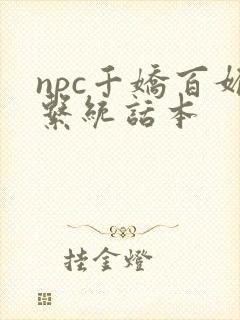 npc千嬌百媚
繫統話本
挂金燈